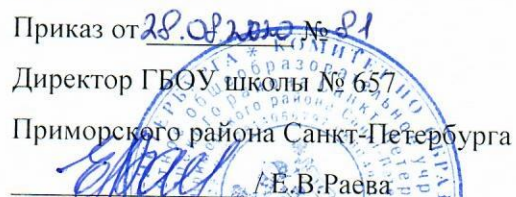 Приказ от 28.08.2020 № 81
Директор ГБОУ школы № 657
Приморского района Санкт-Петербурга
/ Е.В.Раева